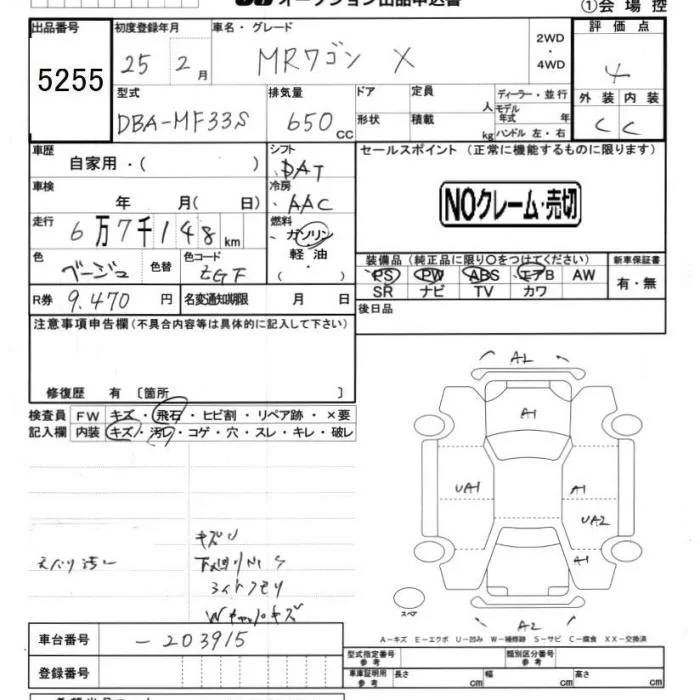 オークション出品申込書
①会場控
出品番号 初度登録年月 車名・グレード 2WD・4WD 評価点
5255 25 2月 MRワゴン X 4
型式 排気量 ドア 定員 人 ディーラー・並行 外装 内装
DBA-MF33S 650CC 形状 積載 kg モデル年式 年 ハンドル 左・右 C C
車歴 自家用・( ) シフト DAT セールスポイント (正常に機能するものに限ります)
車検 年 月( 日) 冷房 AAC NOクレーム・売切
走行 6万7千148km 燃料 ガソリン・軽油・( )
色 ベージュ 色替 色コード ZGF
装備品(純正品に限り○をつけてください) 新車保証書
PS PW ABS エアB AW 有・無
SR ナビ TV カワ
R券 9.470円 名変通知期限 月 日 後日品
注意事項申告欄(不具合内容等は具体的に記入して下さい)
修復歴 有 〔箇所 〕
検査員 FW キズ・飛石・ヒビ割・リペア跡・×要
記入欄 内装 キズ・汚レ・コゲ・穴・スレ・キレ・破レ
A2
A1
UA1 A1
UA2
A1
キズU
ライトクモリ
Wキャップキズ
スペア
A2
A-キズ E-エクボ U-凹み W-補修跡 S-サビ C-腐食 XX-交換済
車台番号 -203915
型式指定番号 参考 類別区分番号 参考
登録番号 車庫証明用 参考 長さ cm 幅 cm 高さ cm